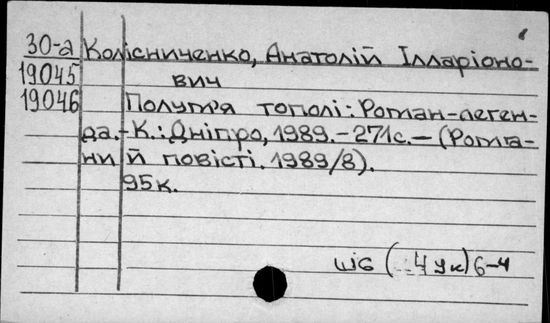 30-а Колісниченко, Анатолій Ілларіоно-
19045 вич
19046 Полум'я тополі: Роман-леген-
да.-К.: Дніпро, 1989.-271с.-(Рома-
ни й повісті. 1989/8).
95к.
ші6 ( 4Ук) 6-4